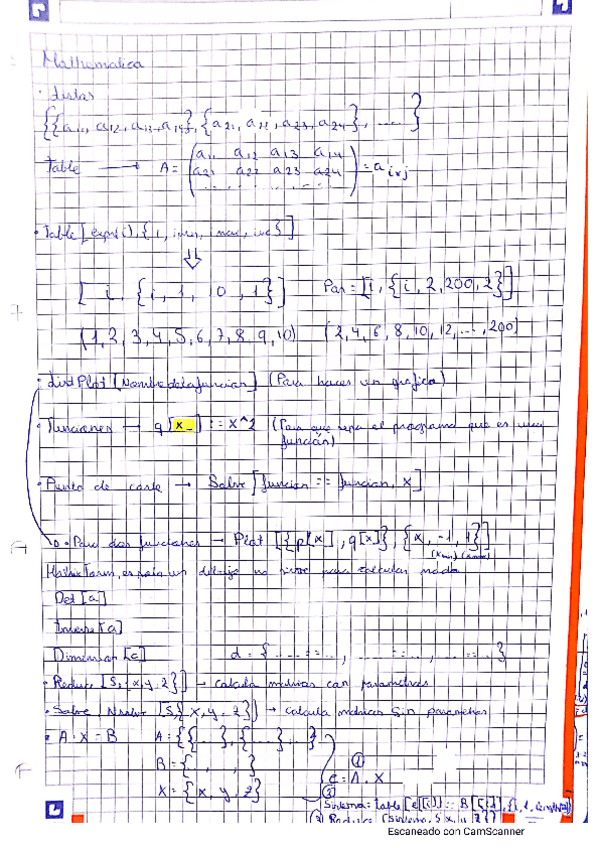 Mathematica
· Listas
{{a11, a12, a13, a14}, {a21, a22, a23, a24}, .... }
Table → A = (a11 a12 a13 a14
a21 a22 a23 a24
.........) = a ixj
· Table [expr(i), {i, imin, max, inc}]
⇓
[i, {i, 1, 10, 1}] Par = [i, {i, 2, 200, 2}]
(1,2,3,4,5,6,7,8,9,10) (2,4,6,8,10,12,...,200]
· ListPlot [Nombredelafuncion] (Para hacer un grafico)
· Funciones → q[x_] := x^2 (Para que sepa el programa que es una
función)
· Punto de corte → Solve [funcion == funcion, x]
· Para dos funciones → Plot [{p[x], q[x]}, {x, -1, 1}]
(xmin) (xmax)
MatrixForm, es para un dibujo no sirve para calcular nada
Det [a]
Inverse [a]
Dimension [c] d = {....==.., ....==.., ...==..}
· Reduce [S, {x,y,z}] → calcula matrices con parametros
· Solve / NSolve [S, {x, y, z}] → calcula matrices sin parametros
· A·X = B A = {{...}, {...}...}
B = {.., .., }
X = {x, y, z}
①
c = A . X
②
Sistema = Table [c[[i]] == B[[i]], {i, 1,
③ Reduce [sistema, {x, y, z}]
Escaneado con CamScanner